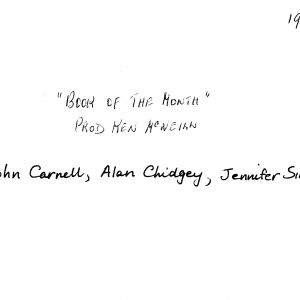 19
"BOOK OF THE MONTH"
PROD KEN McNEILL
ohn Carnell, Alan Chidgey, Jennifer Si